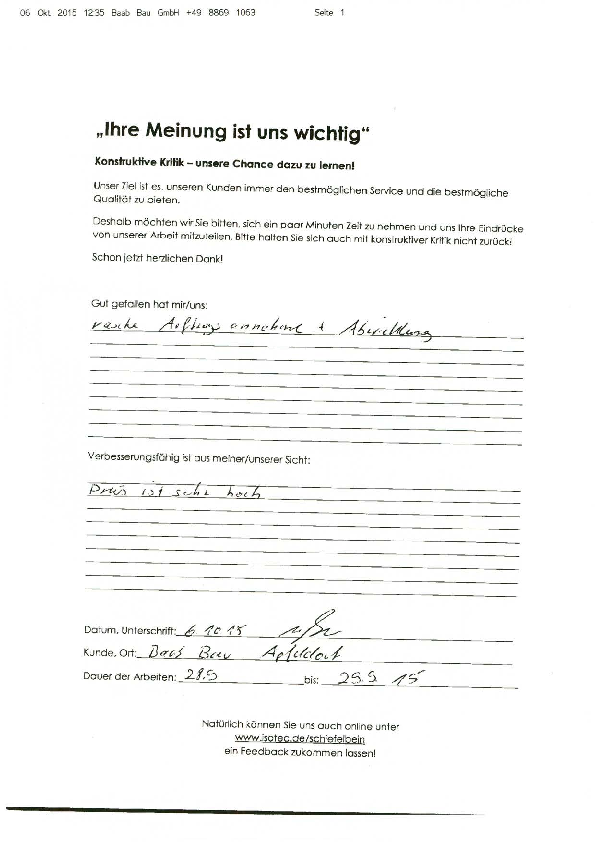 06 Okt 2015 12:35 Baab Bau GmbH +49 8869 1063 Seite 1
„Ihre Meinung ist uns wichtig“
Konstruktive Kritik – unsere Chance dazu zu lernen!
Unser Ziel ist es, unseren Kunden immer den bestmöglichen Service und die bestmögliche
Qualität zu bieten.
Deshalb möchten wir Sie bitten, sich ein paar Minuten Zeit zu nehmen und uns Ihre Eindrücke
von unserer Arbeit mitzuteilen. Bitte halten Sie sich auch mit konstruktiver Kritik nicht zurück!
Schon jetzt herzlichen Dank!
Gut gefallen hat mir/uns:
rasche Auftragsannahme + Abwicklung
Verbesserungsfähig ist aus meiner/unserer Sicht:
Preis ist sehr hoch
Datum, Unterschrift: 6.10.15
Kunde, Ort: Bau Apfeldorf
Dauer der Arbeiten: 28.9 bis: 29.9 15
Natürlich können Sie uns auch online unter
www.isotec.de/schiefelbein
ein Feedback zukommen lassen!